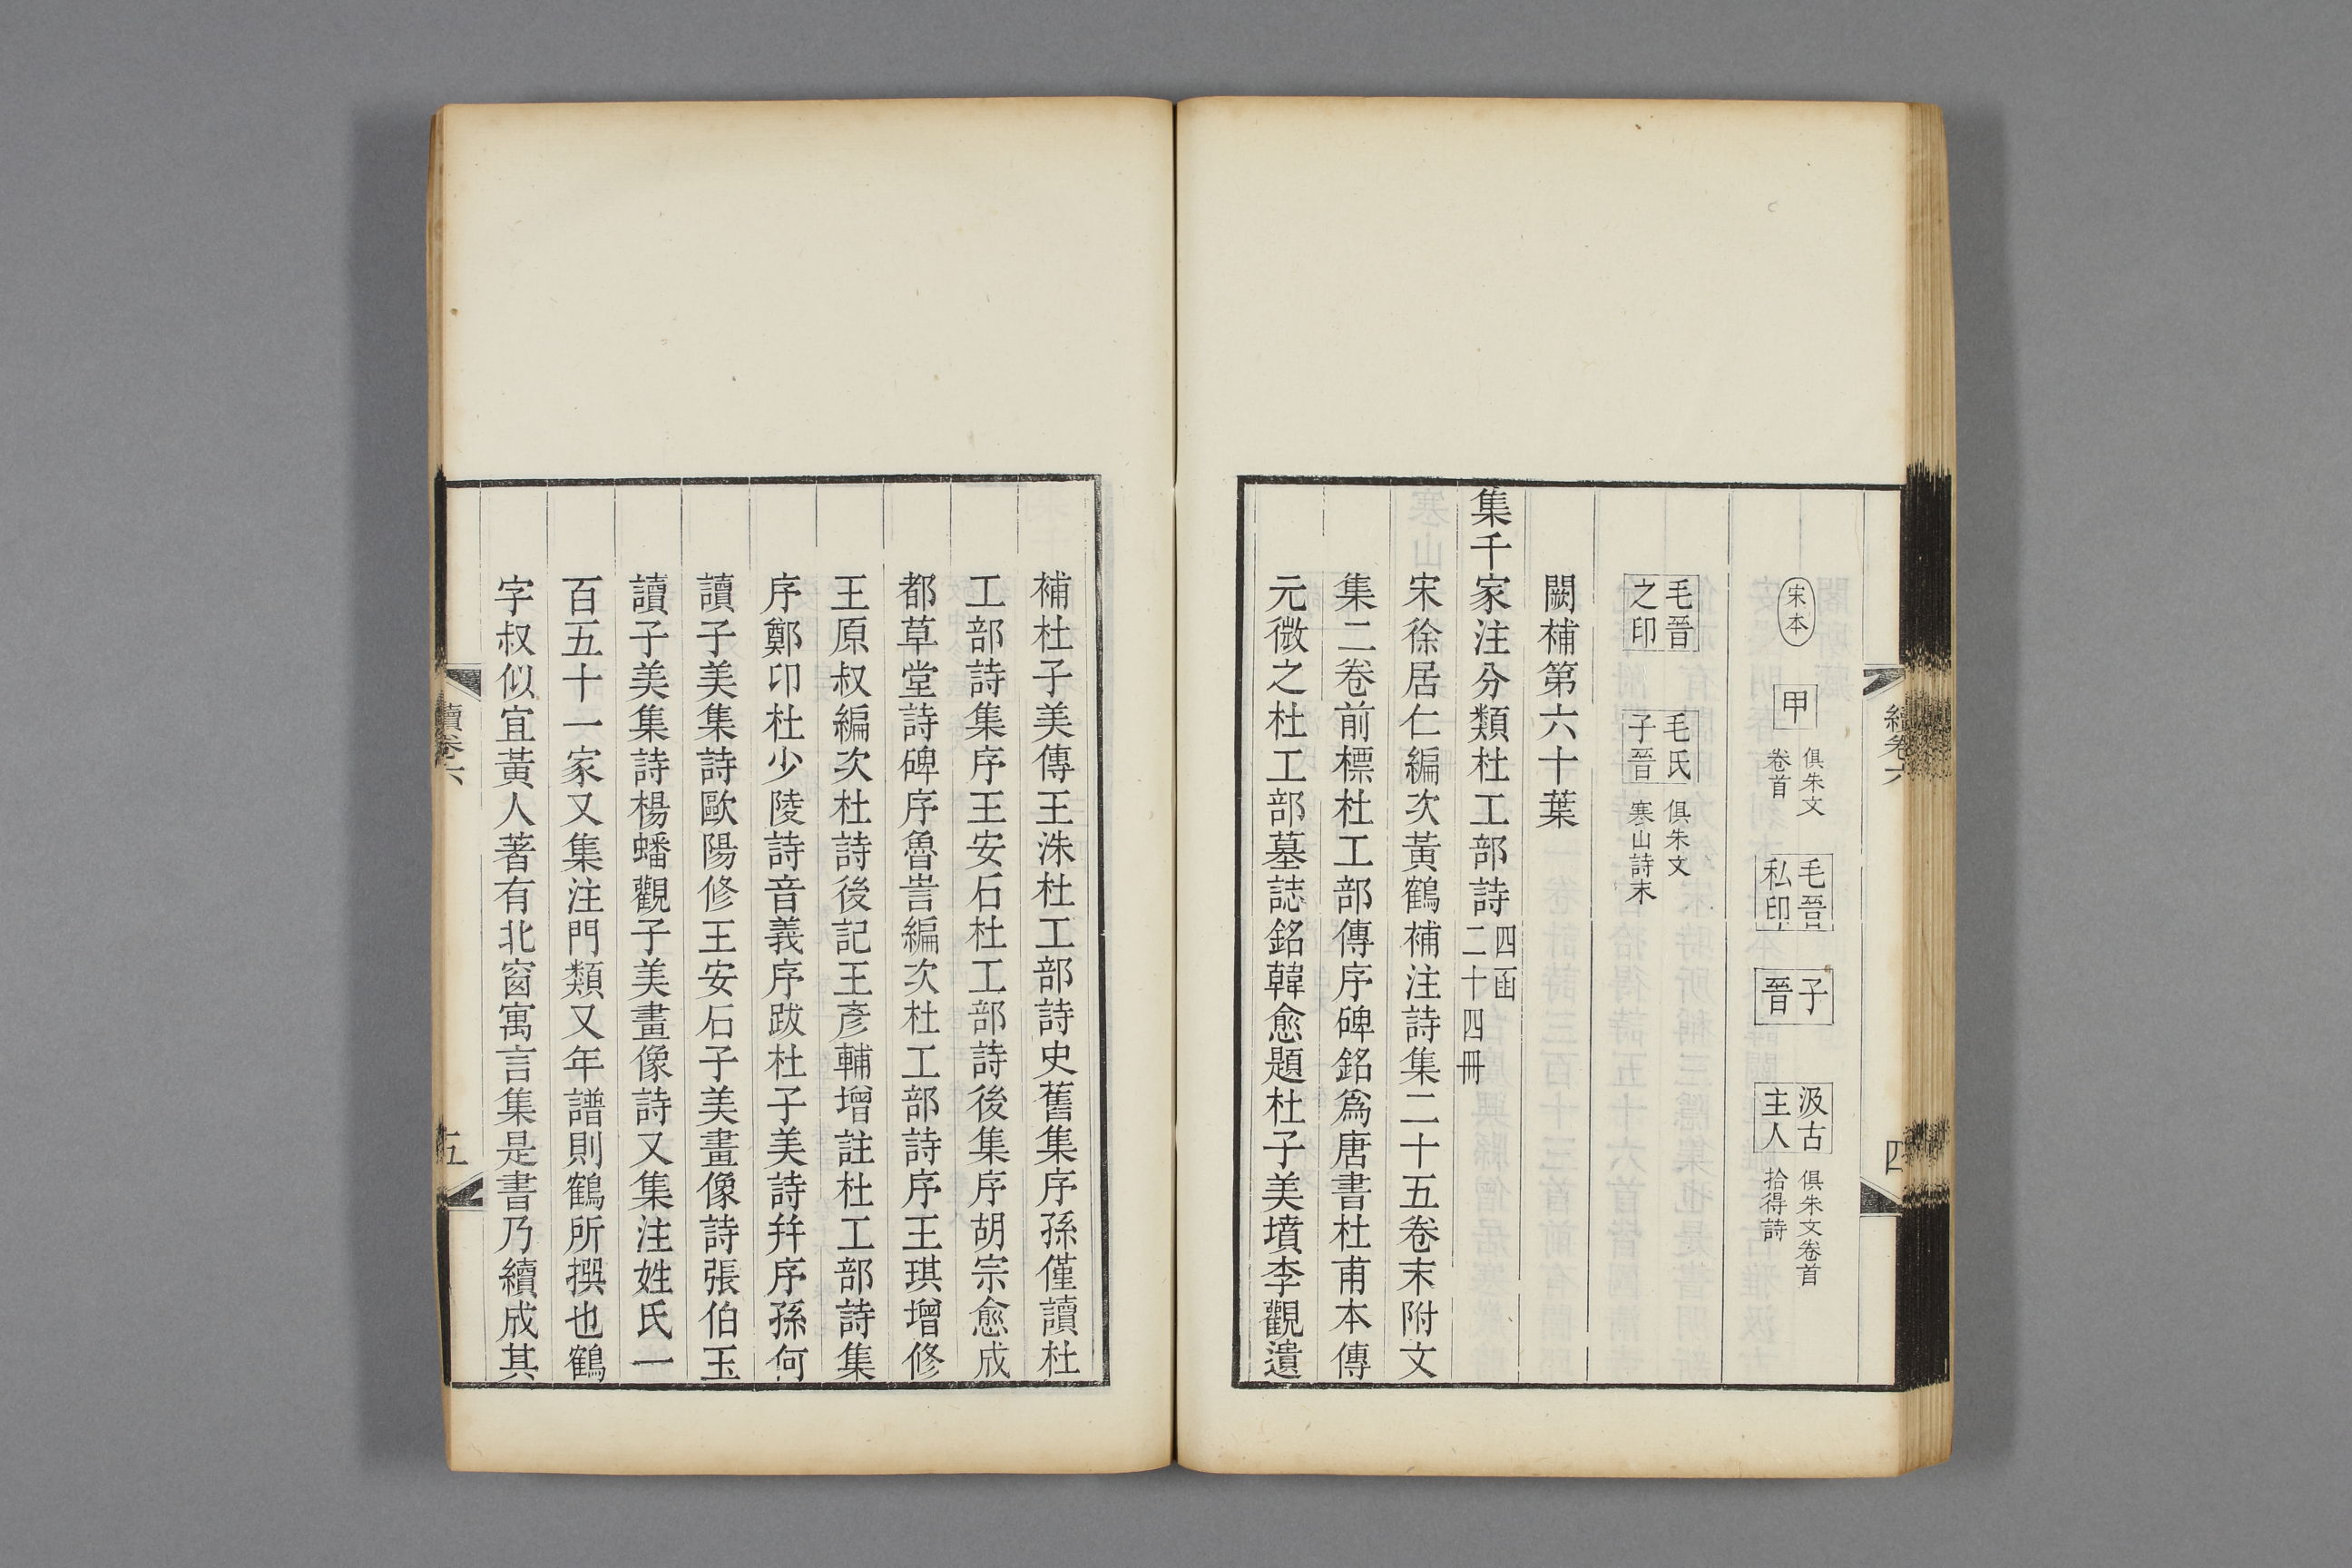 宋本 甲 俱朱文卷首 毛晉私印 子晉 汲古主人 俱朱文卷首拾得詩
毛晉之印 毛氏子晉 俱朱文寒山詩末
闕補第六十葉
集千家注分類杜工部詩 四函二十四冊
宋徐居仁編次黃鶴補注詩集二十五卷末附文
集二卷前標杜工部傳序碑銘爲唐書杜甫本傳
元微之杜工部墓誌銘韓愈題杜子美墳李觀遺
續卷六 四
補杜子美傳王洙杜工部詩史舊集序孫僅讀杜
工部詩集序王安石杜工部詩後集序胡宗愈成
都草堂詩碑序魯訔編次杜工部詩序王琪增修
王原叔編次杜詩後記王彥輔增註杜工部詩集
序鄭卬杜少陵詩音義序跋杜子美詩幷序孫何
讀子美集詩歐陽修王安石子美畫像詩張伯玉
讀子美集詩楊蟠觀子美畫像詩又集注姓氏一
百五十一家又集注門類又年譜則鶴所撰也鶴
字叔似宜黃人著有北窗寓言集是書乃續成其
續卷六 五